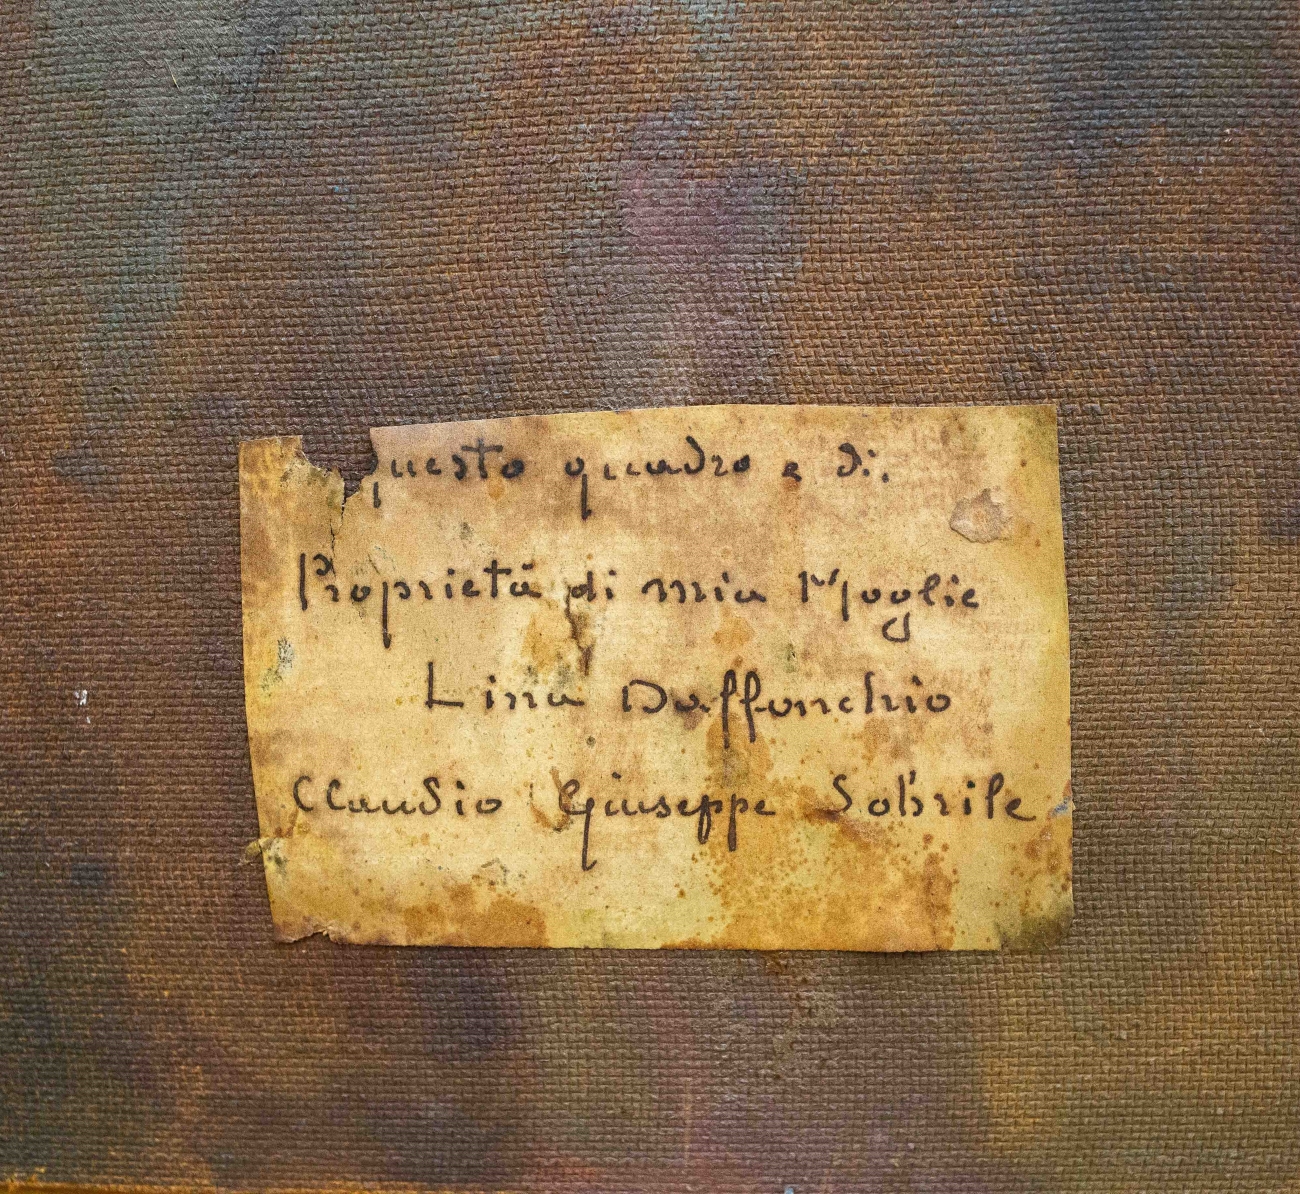 Questo quadro e di.
Proprietà di mia Moglie
Lina Daffonchio
Claudio Giuseppe Sobrile